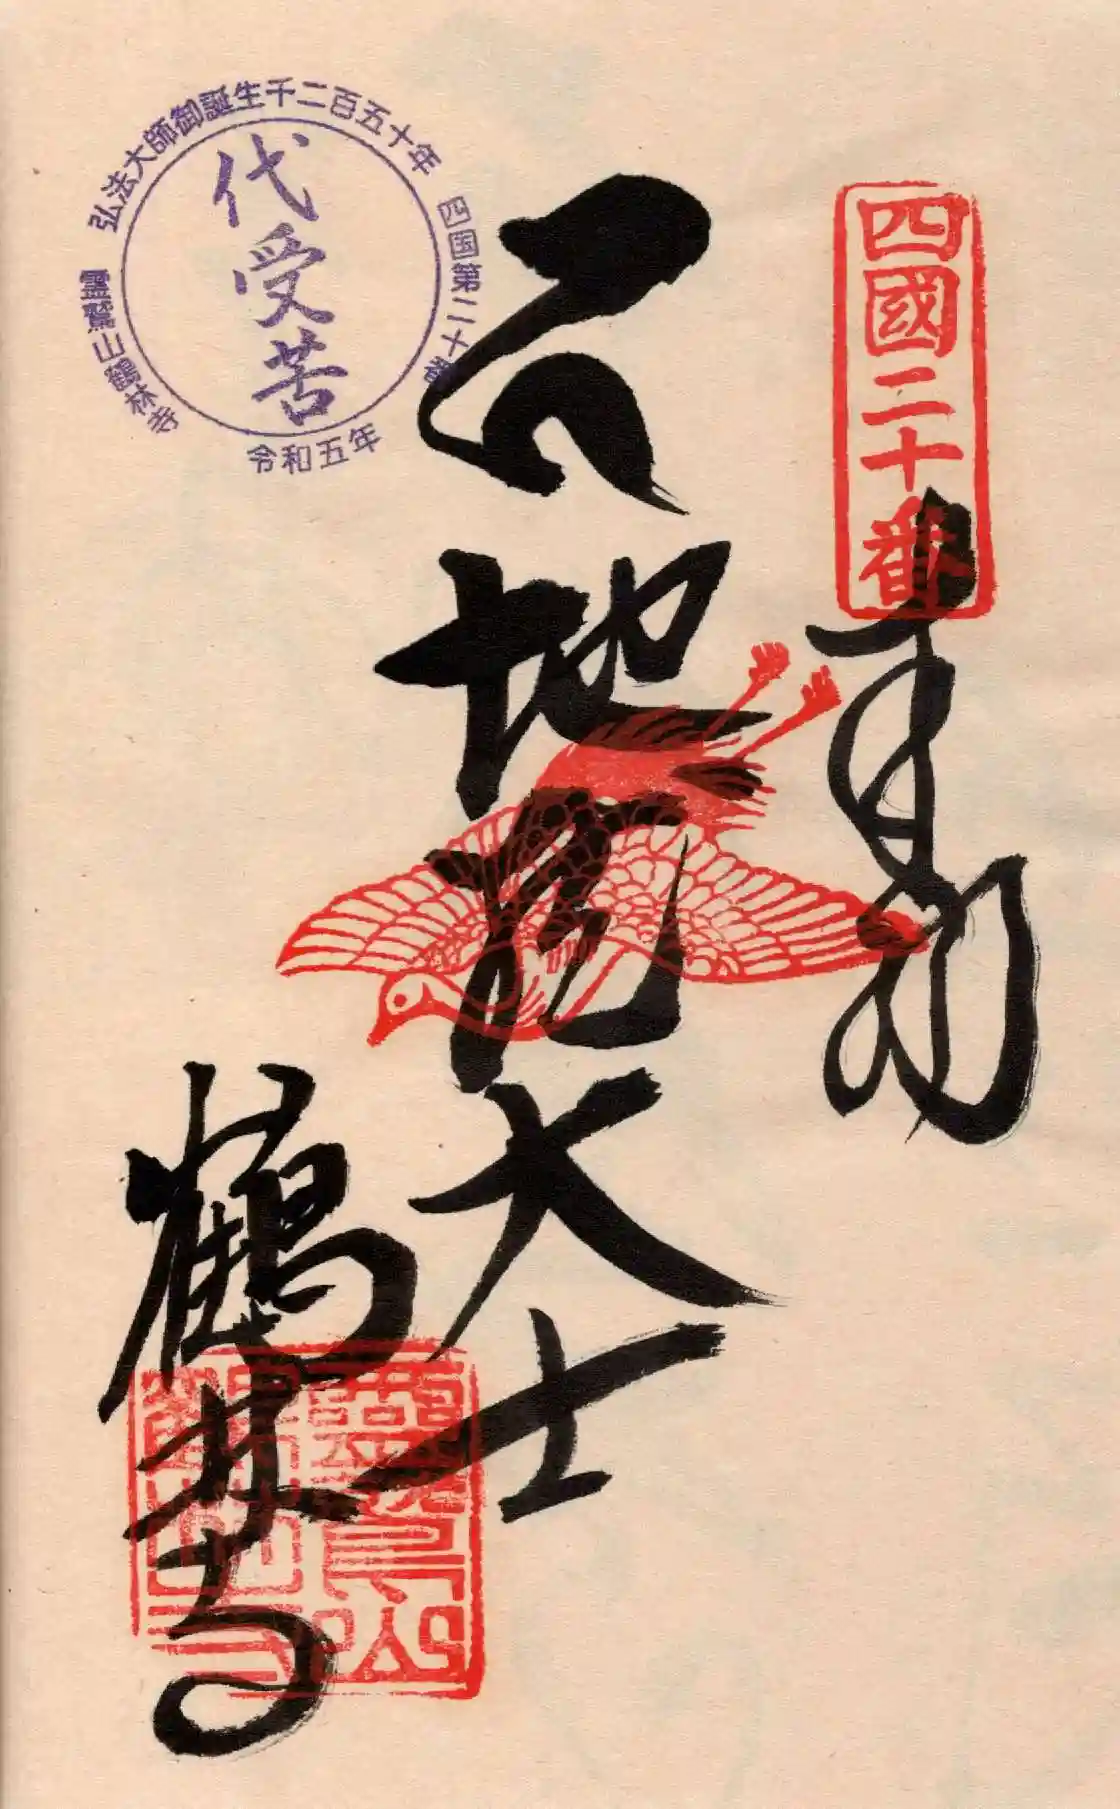 四國二十番
奉拝
地蔵大士
鶴林寺
弘法大師御誕生千二百五十年
四国第二十番
令和五年
霊鷲山鶴林寺
代受苦